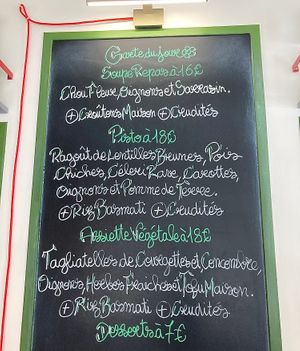 Carte du Jour
Soupe Repas à 16€
Chou Fleur, Oignons et Sarrasin.
⊕ Croûtons Maison ⊕ Crudités
Pisto à 18€
Ragoût de Lentilles Brunes, Pois
Chiches, Céleri Rave, Carottes,
Oignons et Pomme de Terre.
⊕ Riz Basmati ⊕ Crudités
Assiette Végétale à 18€
Tagliatelles de Courgettes et Concombre,
Oignons, Herbes Fraiches et Tofu Maison.
⊕ Riz Basmati ⊕ Crudités
Desserts à 7€